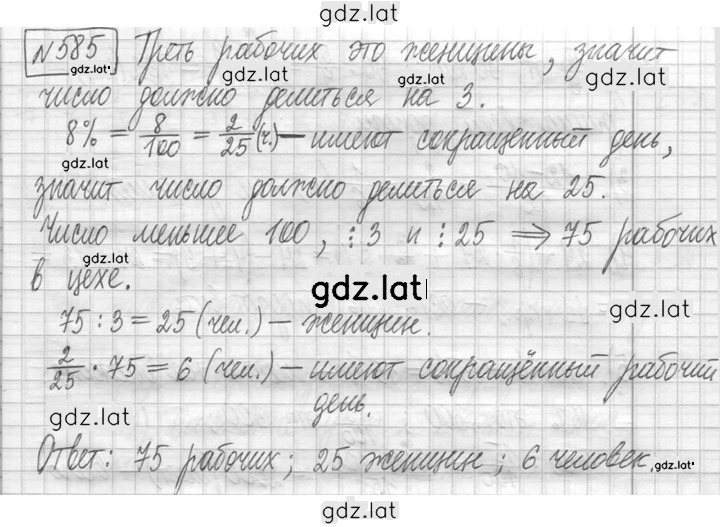 gdz.lat
№585 Треть рабочих это женщины, значит
gdz.lat gdz.lat gdz.lat gdz.lat
число должно делиться на 3.
8% = 8/100 = 2/25 (ч.) — имеют сокращенный день,
gdz.lat gdz.lat
значит число должно делиться на 25.
Число меньшее 100, ⋮3 и ⋮25 ⟹ 75 рабочих
gdz.lat
в цехе.
gdz.lat
gdz.lat
75 : 3 = 25 (чел.) — женщин.
2/25 · 75 = 6 (чел.) — имеют сокращённый рабочий
день.
gdz.lat gdz.lat
Ответ: 75 рабочих; 25 женщин; 6 человек.
gdz.lat
gdz.lat